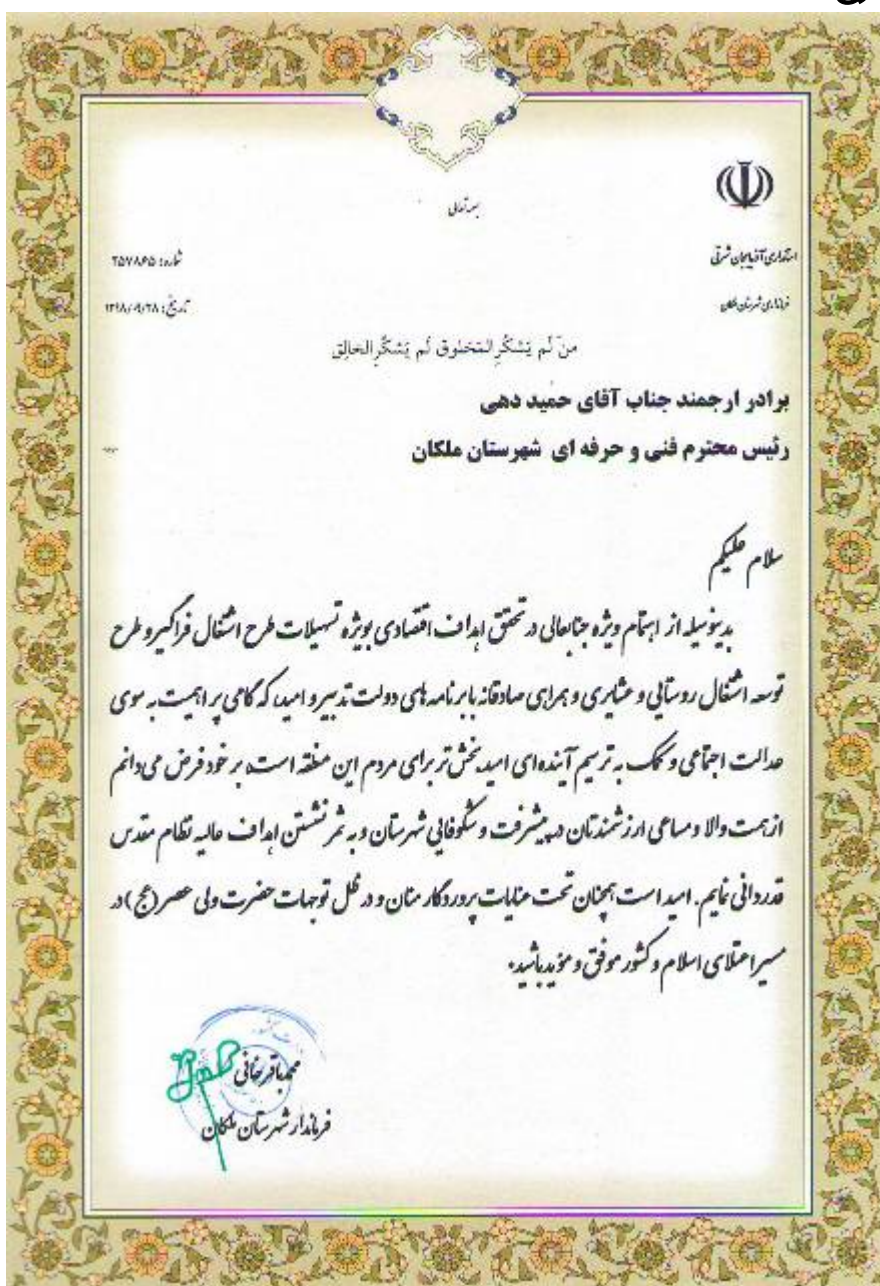 بسمه تعالی
استانداری آذربایجان شرقی
شماره: ۲۵۷۸۶۵
فرمانداری شهرستان ملکان
تاریخ: ۱۳۹۸/۰۹/۲۸
من لَم یَشکُرِ المَخلوق لَم یَشکُرِ الخالِق
برادر ارجمند جناب آقای حمید دهی
رئیس محترم فنی و حرفه ای شهرستان ملکان
سلام علیکم
بدینوسیله از اهتمام ویژه جنابعالی در تحقق اهداف اقتصادی بویژه تسهیلات طرح اشتغال فراگیر و طرح
توسعه اشتغال روستایی و عشایری و همراهی صادقانه با برنامه های دولت تدبیر و امید، که گامی پر اهمیت به سوی
عدالت اجتماعی و کمک به ترسیم آینده ای امید بخش تر برای مردم این منطقه است، بر خود فرض می دانم
از همت والا و مساعی ارزشمندتان در پیشرفت و شکوفایی شهرستان و به ثمر نشستن اهداف عالیه نظام مقدس
قدردانی نمایم. امید است همچنان تحت عنایات پروردگار منان و در ظل توجهات حضرت ولی عصر (عج) در
مسیر اعتلای اسلام و کشور موفق و موید باشید.
محمدباقر خانی
فرماندار شهرستان ملکان